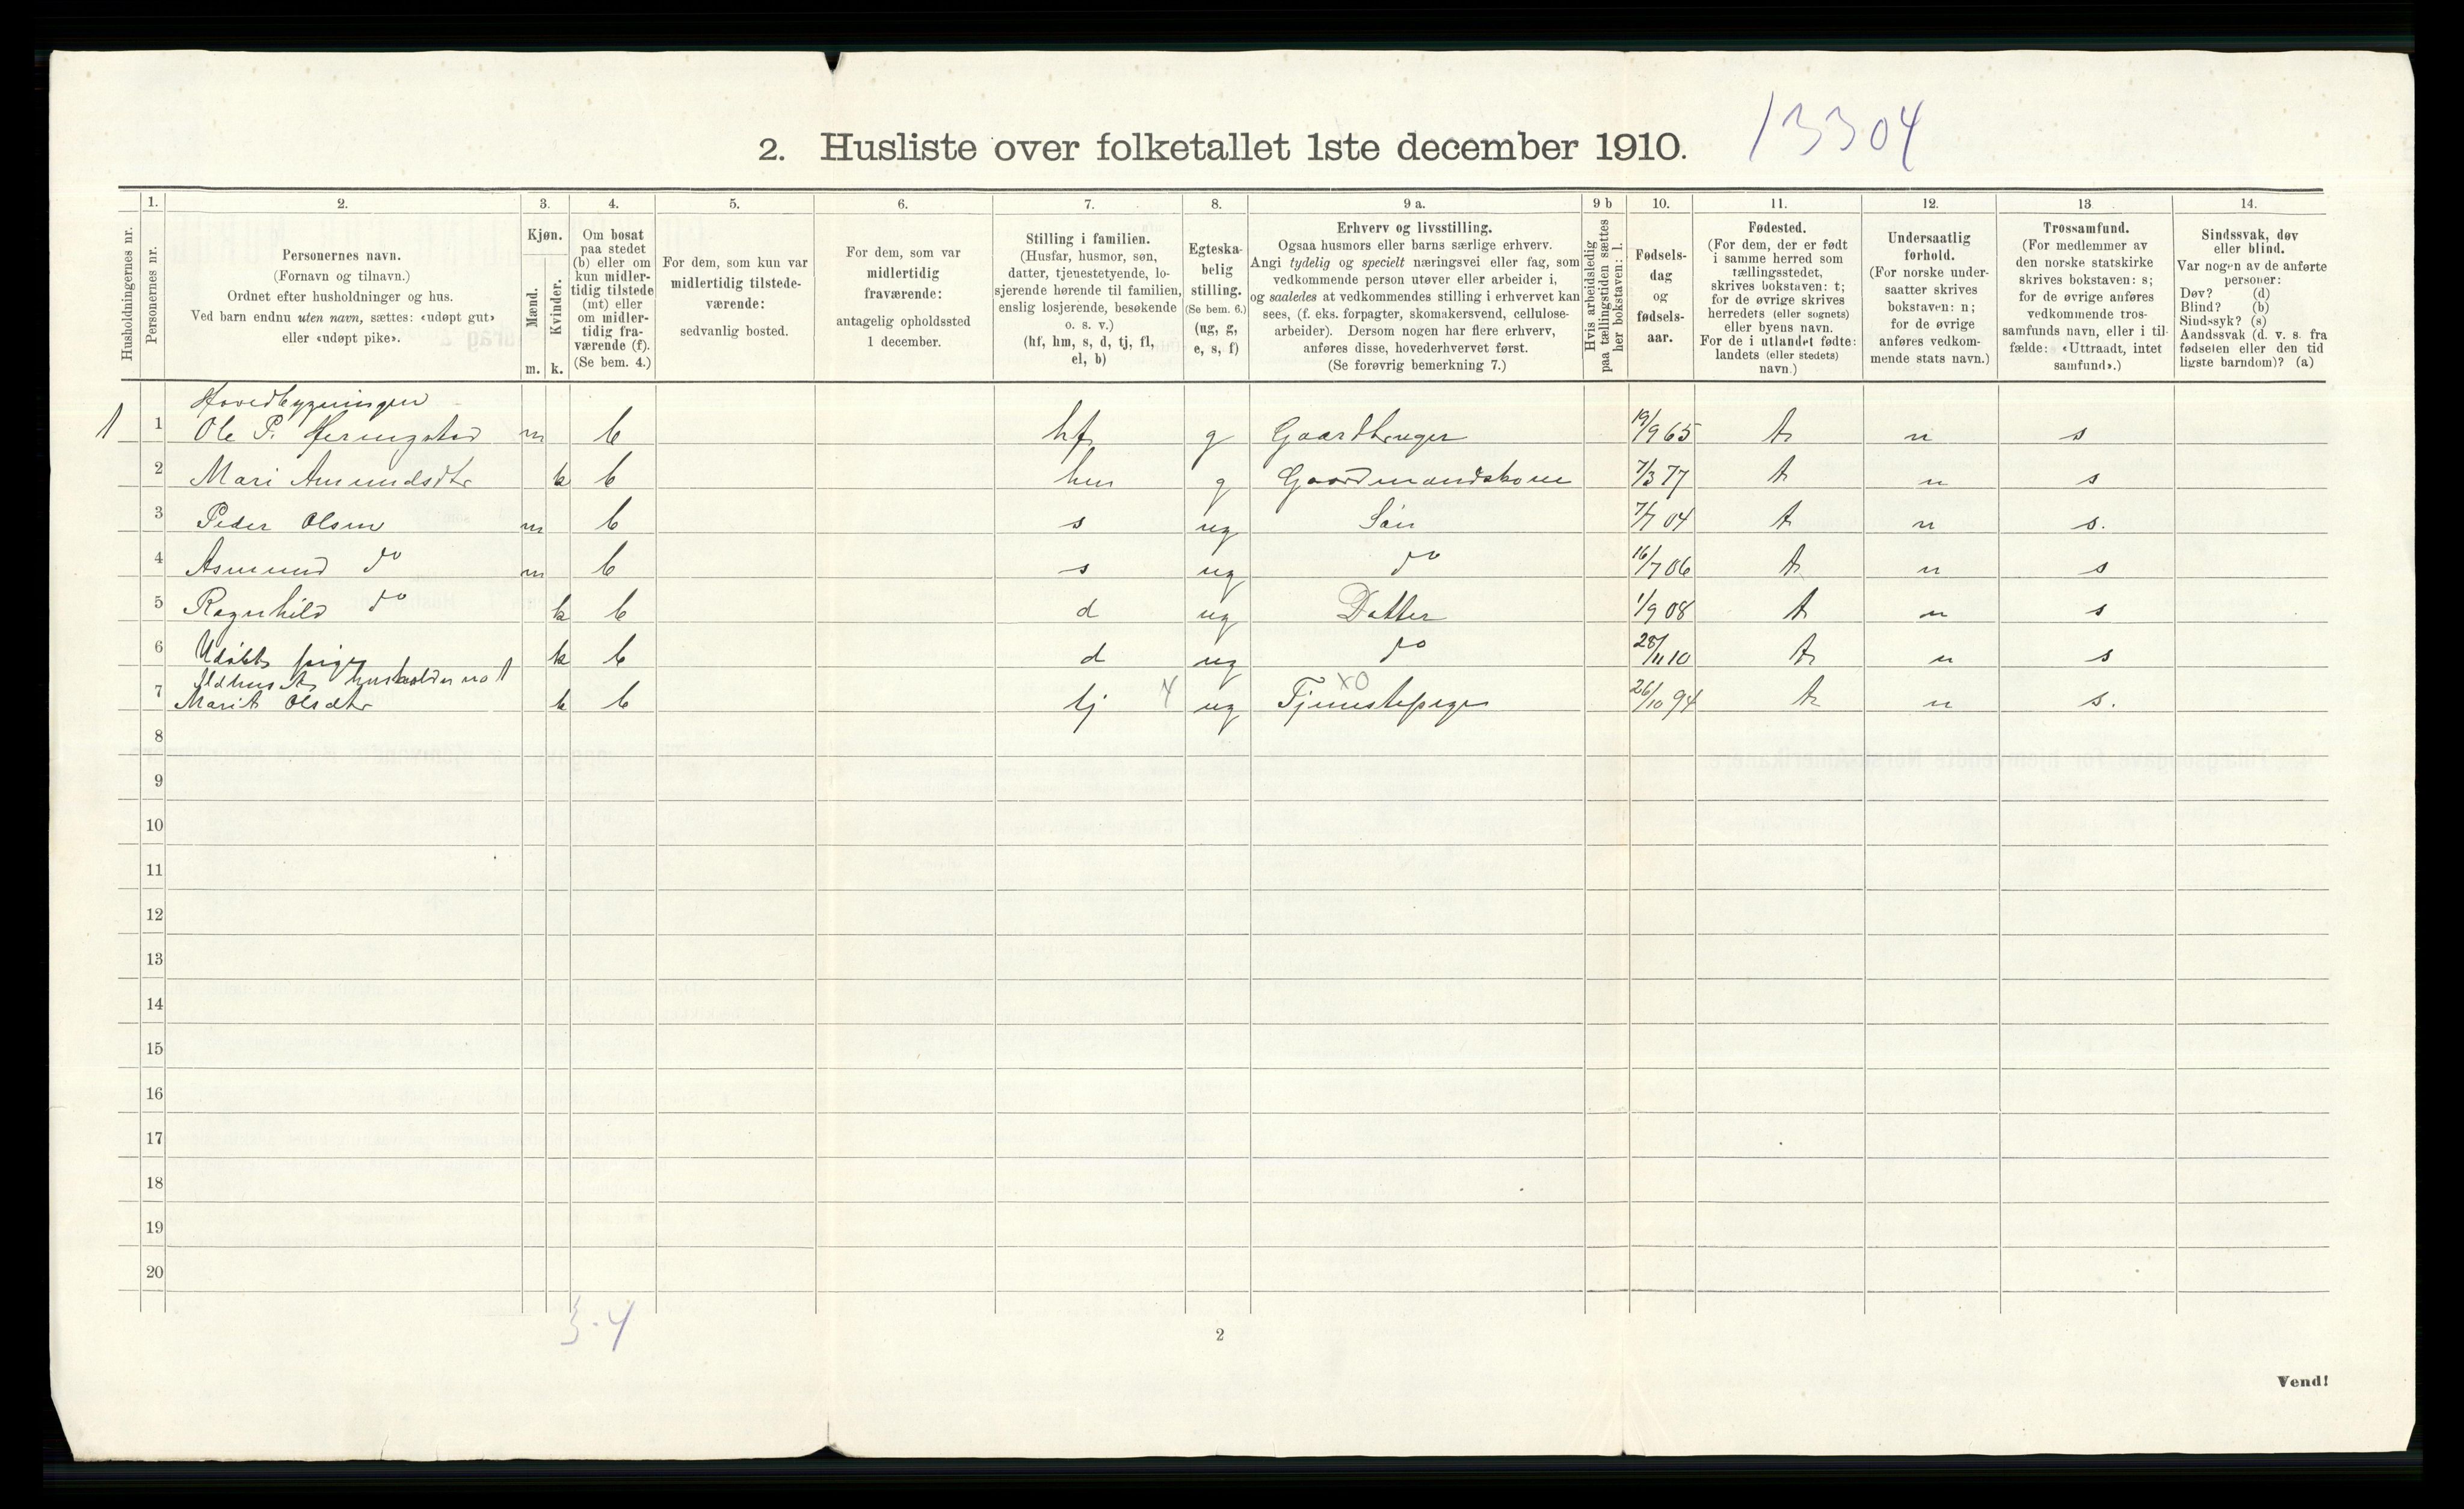 13304
2. Husliste over folketallet 1ste december 1910.
Husholdningernes nr.
1.
Personernes nr.
2.
Personernes navn.
(Fornavn og tilnavn.)
Ordnet efter husholdninger og hus.
Ved barn endnu uten navn, sættes: «udøpt gut»
eller «udøpt pike».
3.
Kjøn.
Mænd.
Kvinder.
m. k.
4.
Om bosat
paa stedet
(b) eller om
kun midler-
tidig tilstede
(mt) eller
om midler-
tidig fra-
værende (f).
(Se bem. 4.)
5.
For dem, som kun var
midlertidig tilstede-
værende:
sedvanlig bosted.
6.
For dem, som var
midlertidig
fraværende:
antagelig opholdssted
1 december.
7.
Stilling i familien.
(Husfar, husmor, søn,
datter, tjenestetyende, lo-
sjerende hørende til familien,
enslig losjerende, besøkende
o. s. v.)
(hf, hm, s, d, tj, fl,
el, b)
8.
Egteska-
belig
stilling.
(Se bem. 6.)
(ug, g,
e, s, f)
9 a.
Erhverv og livsstilling.
Ogsaa husmors eller barns særlige erhverv.
Angi tydelig og specielt næringsvei eller fag, som
vedkommende person utøver eller arbeider i,
og saaledes at vedkommendes stilling i erhvervet kan
sees, (f. eks. forpagter, skomakersvend, cellulose-
arbeider). Dersom nogen har flere erhverv,
anføres disse, hovederhvervet først.
(Se forøvrig bemerkning 7.)
9 b
Hvis arbeidsledig
paa tællingstiden sættes
her bokstaven: l.
10.
Fødsels-
dag
og
fødsels-
aar.
11.
Fødested.
(For dem, der er født
i samme herred som
tællingsstedet,
skrives bokstaven: t;
for de øvrige skrives
herredets (eller sognets)
eller byens navn.
For de i utlandet fødte:
landets (eller stedets)
navn.)
12.
Undersaatlig
forhold.
(For norske under-
saatter skrives
bokstaven: n;
for de øvrige
anføres vedkom-
mende stats navn.)
13
Trossamfund.
(For medlemmer av
den norske statskirke
skrives bokstaven: s;
for de øvrige anføres
vedkommende tros-
samfunds navn, eller i til-
fælde: «Uttraadt, intet
samfund».)
14.
Sindssvak, døv
eller blind.
Var nogen av de anførte
personer:
Døv? (d)
Blind? (b)
Sindssyk? (s)
Aandssvak (d. v. s. fra
fødselen eller den tid
ligste barndom)? (a)
Hovedbygningen
1 1 Ole P. Heringstad m b hf g Gaardbruger 19/9 65 t n s
2 Mari Amundsdtr k b hm g Gaardmandskone 7/3 77 t n s
3 Peder Olsen m b s ug Søn 7/7 04 t n s.
4 Asmund do m b s ug do 16/7 06 t n s
5 Ragnhild do k b d ug Datter 1/9 08 t n s
6 Udøbt pige k b d ug do 28/11 10 t n s
Ildhuset husholdn no 1
7 Marit Olsdtr k b tj 4 ug Tjenestepige x0 26/10 94 t n s.
8
9
10
11
12
13
14
15
16
17
18
19
20
3-4
2
Vend!